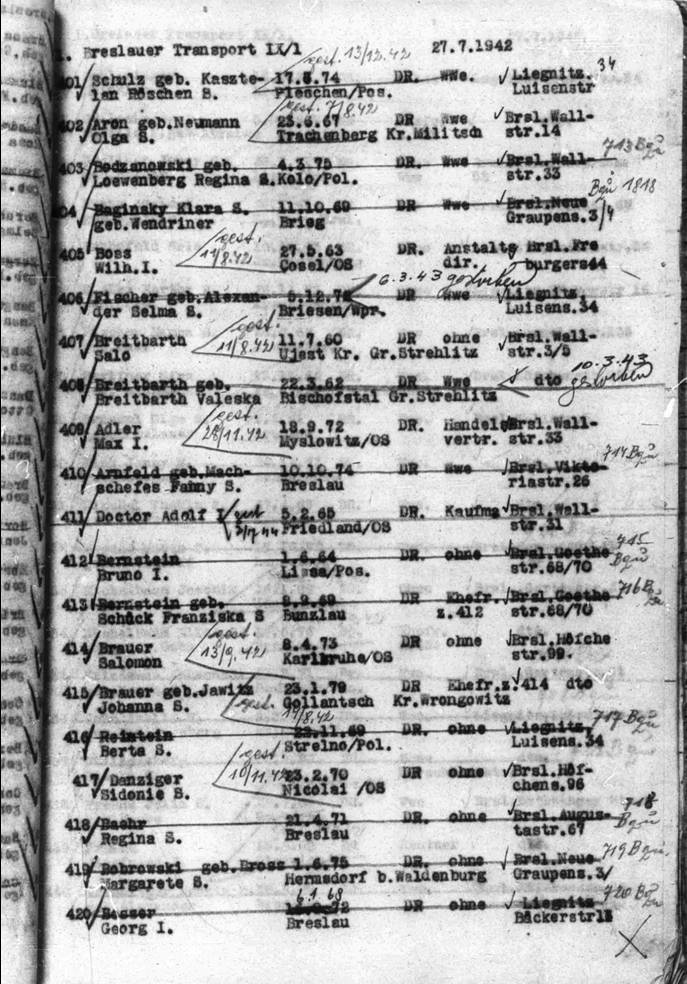 . Breslauer Transport IX/1 27.7.1942
gest. 13/12.42
401/ Schulz geb. Kaszte- 17.5.74 DR. Wwe. Liegnitz. 34
lan Röschen S. Pleschen/Pos. Luisenstr
gest. 7/8.42
402 Aron geb.Neumann 23.6.67 DR Wwe Brsl.Wall-
Olga S. Trachenberg Kr.Militsch str.14
713 Bgů
403 Bodzanowski geb. 4.3.75 DR Wwe Brsl.Wall-
Loewenberg Regina S.Kolo/Pol. str.33
Bgů 1818
04 Baginsky Klara S. 11.10.69 DR Wwe Brsl.Neue
geb.Wendriner Brieg Graupens.3/4
gest. 11/8.42
405 Boss 27.5.63 DR. Anstalts Brsl.Fre
Wilh.I. Cosel/OS dir. burgers44
6.3.43 gestorben
406 Fischer geb.Alexan- 5.12. DR Wwe Liegnitz
der Selma S. Briesen/Wpr. Luisens.34
gest. 11/8.42
407 Breitbarth 11.7.60 DR ohne Brsl.Wall-
Salo Ujest Kr. Gr.Strehlitz str.3/5
10.3.43 gestorben
408 Breitbarth geb. 22.3.62 DR Wwe dto
Breitbarth Valeska Bischofstal Gr.Strehlitz
gest. 28/11.42
409 Adler 18.9.72 DR. Handels Brsl.Wall-
Max I. Myslowitz/OS vertr. str.33
714 Bgů
410 Arnfeld geb.Mach- 10.10.74 DR Wwe Brsl.Vikto-
schefes Fanny S. Breslau riastr.26
411 Doctor Adolf I 5.2.65 DR. Kaufma Brsl.Wall-
Friedland/OS str.31
715 Bgů
412 Bernstein 1.6.64 DR ohne Brsl.Goethe
Bruno I. Lissa/Pos. str.68/70
716 B
413 Bernstein geb. 8.9.69 DR Ehefr. Brsl.Goethe
Schück Franziska S Bunzlau z.412 str.68/70
gest. 13/9.42
414 Brauer 8.4.73 DR ohne Brsl.Höfche
Salomon Karlsruhe/OS str.99.
415 Brauer geb.Jawitz 23.1.79 DR Ehefr.z.414 dto
Johanna S. Gollantsch Kr.Wrongowitz
gest. /8.42
717 Bgů
416 Reintein .11.69 DR. ohne Liegnitz
Berta S. Strelno/Pol. Luisens.34
gest. 10/11.42
417/ Danziger 23.2.70 DR ohne Brsl.Höf-
Sidonie S. Nicolai /OS chens.96
718 Bgů
418 Baehr 21.4.71 DR ohne Brsl.Augus-
Regina S. Breslau tastr.67
719 Bgů
419 Bobrowski geb.Bross 1.6.75 DR. ohne Brsl.Neue
Margarete S. Hermsdorf b.Waldenburg Graupens.3/
6.1.68
720 Bgů
420 Besser .72 DR ohne Liegnitz
Georg I. Breslau Bäckerstr13